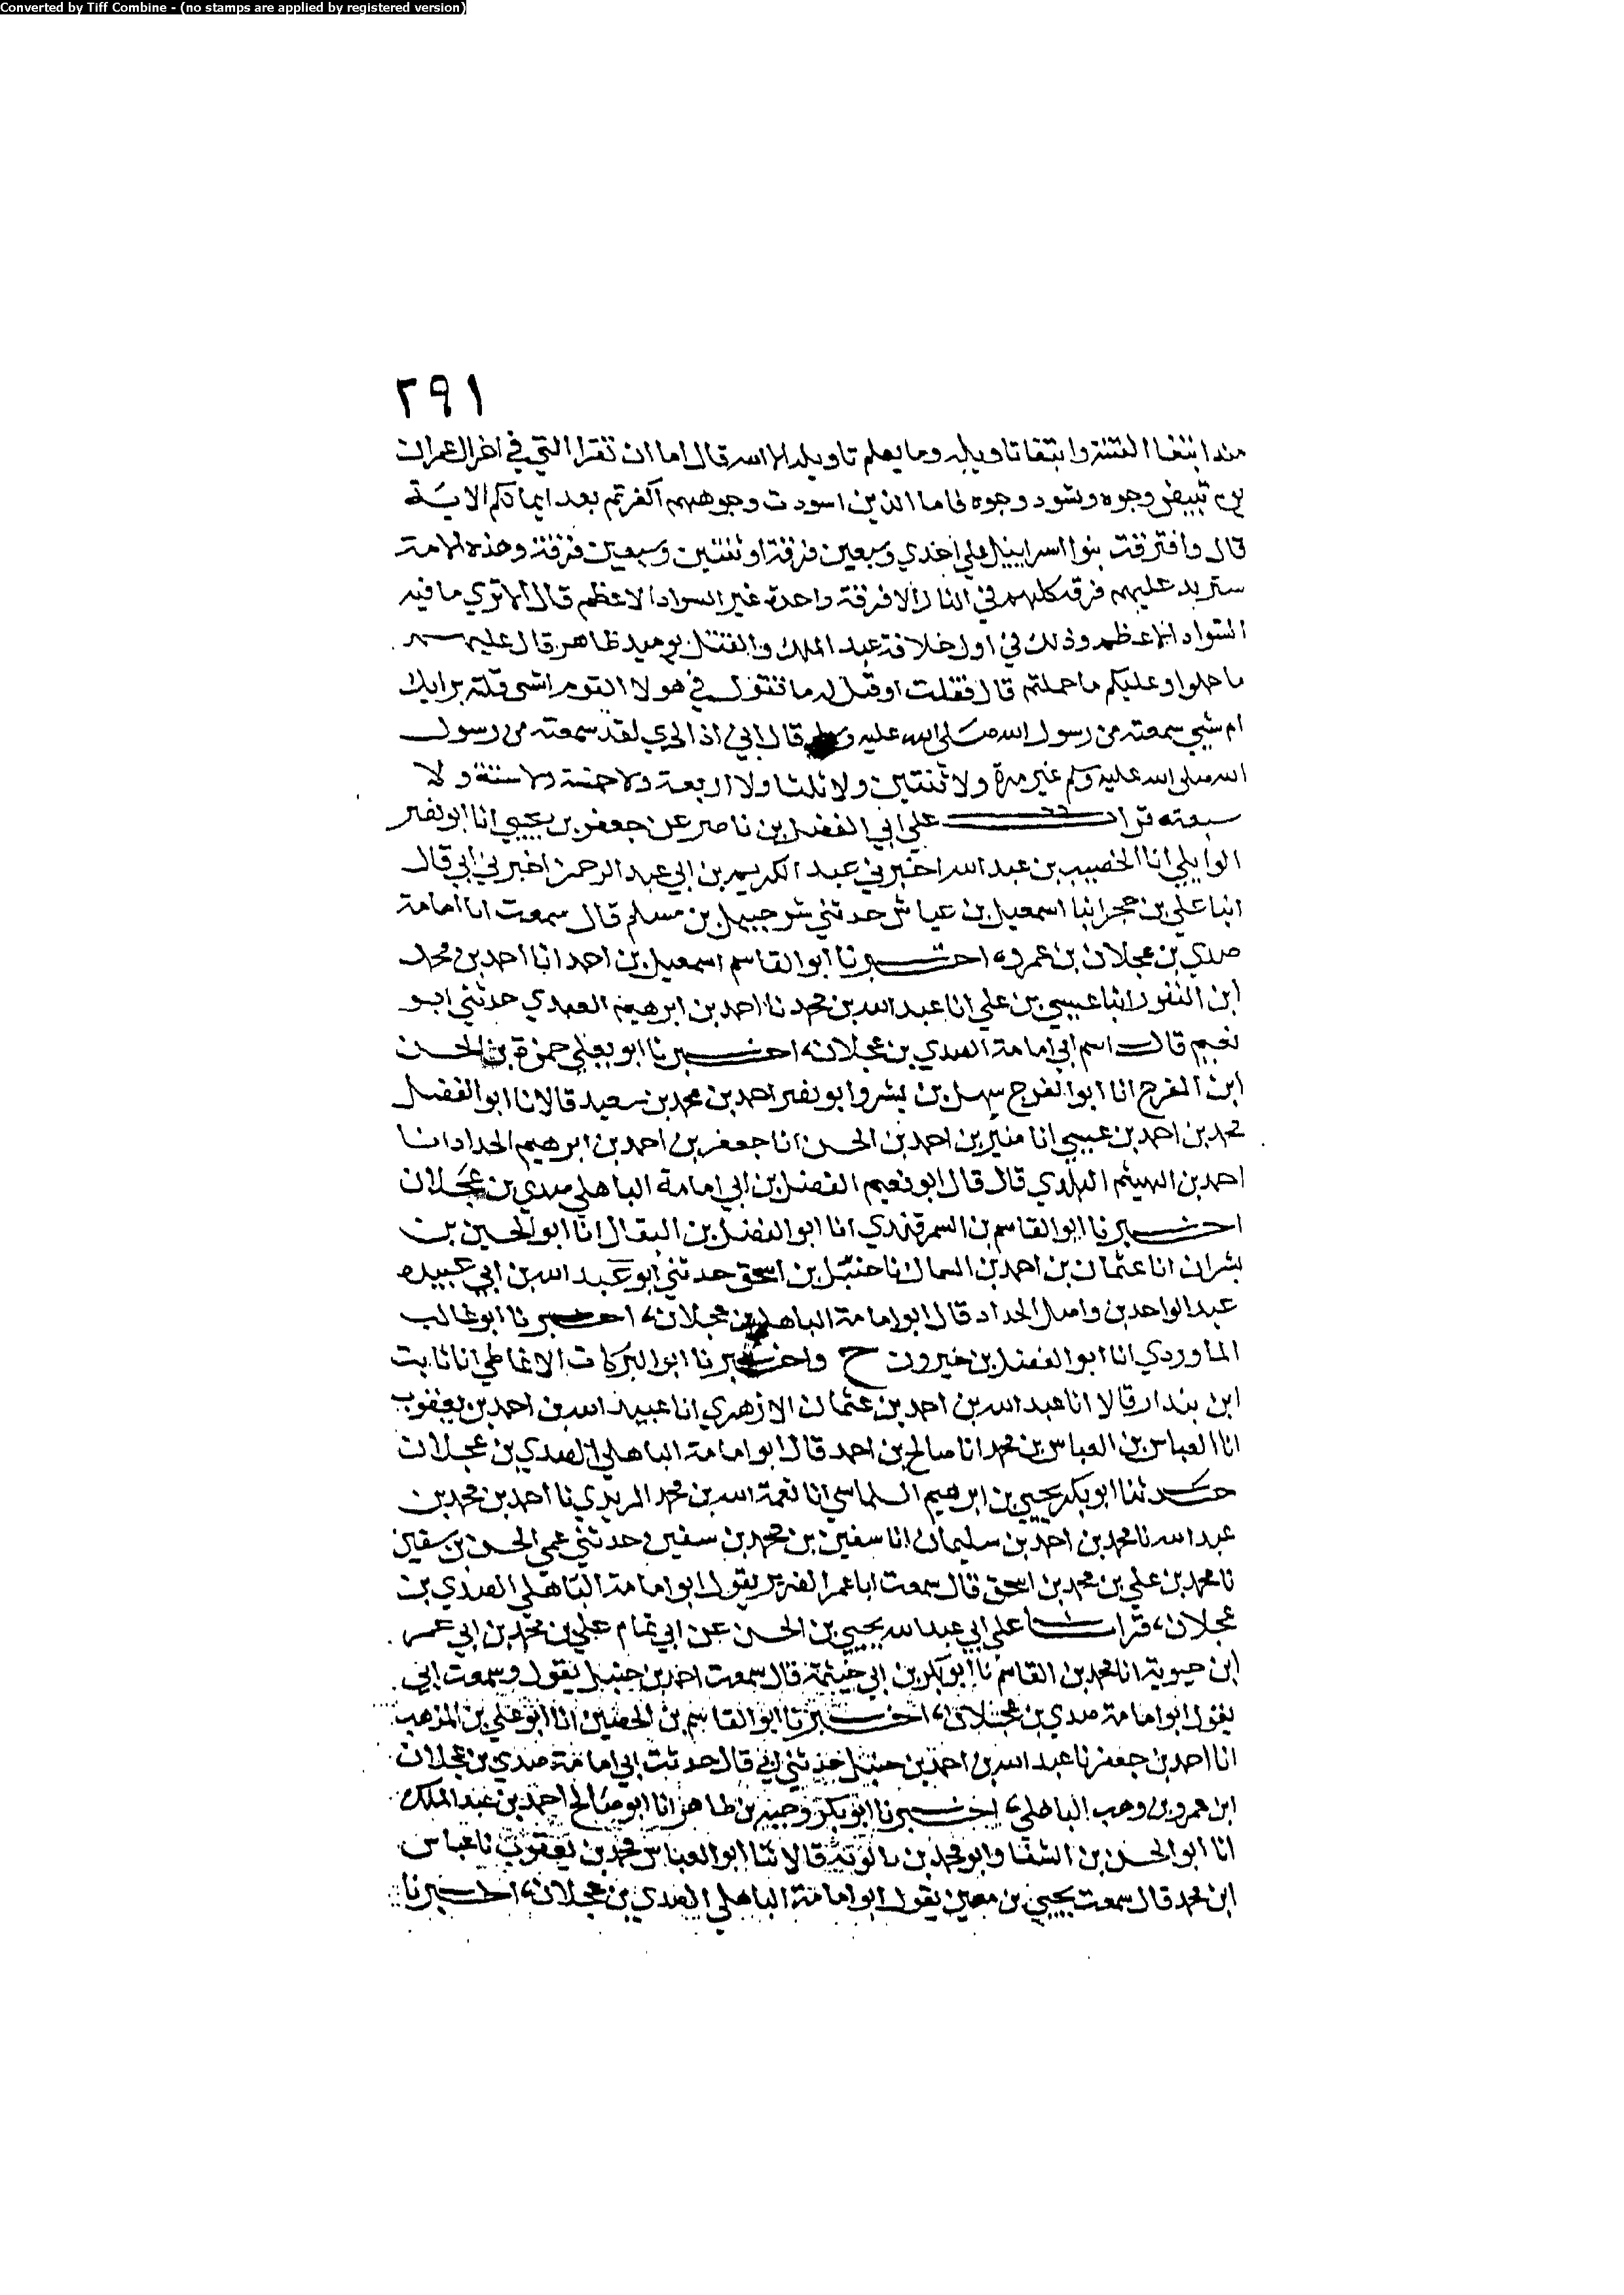 Converted by Tiff Combine - (no stamps are applied by registered version)
٢٩١
منه ابتغاا الفتنة وابتغا تاويله وما يعلم تاويله الا الله قال اما ان تقرا التي في اخر ال عمران
يوم تبيض وجوه وتسود وجوه فاما الذين اسودت وجوههم اكفرتم بعد ايمانكم الاية
قال وافترقت بنوا اسراييل علي احدي وسبعين فرقة او ثنتين وسبعين فرقة وهذه الامة
ستزيد عليهم فرقه كلهم في النار الا فرقة واحدة غير السواد الاعظم قال الا تري ما فيه
السواد الاعظم وذلك في اول خلافة عبد الملك والقتل يوميد ظاهر قال عليهم
ما حملوا وعليكم ما حملتم قال فقلت او قيل له ما تقول في هولا القوم اشي قلته برايك
ام شيي سمعته من رسول الله صلى الله عليه وسلم قال اني اذا لجري لقد سمعته من رسول
الله صلى الله عليه وسلم غير مرة ولا ثنتين ولا ثلثا ولا اربعة ولا خمسة ولا ستة ولا
سبعته قرات علي ابي الفضل بن ناصر عن جعفر بن يحيي انا ابو نصر
الوايلي انا الخصيب بن عبد الله اخبرني عبد الكريم بن ابي عبد الرحمن اخبرني ابي قال
انبا علي بن حجر انبا اسمعيل بن عياش حدثني شرحبيل بن مسلم قال سمعت ابا امامة
صدي بن عجلان بن عمرو، اخبرنا ابو القاسم اسمعيل بن احمد انا احمد بن محمد
ابن النقور انبا عيسي بن علي انا عبد الله بن محمد نا احمد بن ابرهيم العبدي حدثني ابو
نعيم قال اسم ابي امامة الصدي بن عجلان، اخبرنا ابو يعلي حمزة بن الحسن
ابن المفرج انا ابو الفرج سهل بن بشر وابو نصر احمد بن محمد بن سعيد قالا نا ابو الفضل
محمد بن احمد بن عيسي انا منير بن احمد بن الحسن انا جعفر بن احمد بن ابرهيم الحداد انا
احمد بن الهيثم البلدي قال قال ابو نعيم الفضل بن ابي امامة الباهلي صدي بن عجلان
اخبرنا ابو القاسم بن السمرقندي انا ابو الفضل بن البقال انا ابو الحسين بن
بشران انا عثمان بن احمد بن السماك نا حنبل بن اسحق حدثني ابو عبد الله بن ابي عبيده
عبد الواحد بن واصل الحداد قال ابو امامة الباهلي بن عجلان، اخبرنا ابو غالب
الماوردي انا ابو الفضل بن خيرون ح واخبرنا ابو البركات الانماطي انا ثابت
ابن بندار قالا انا عبد الله بن احمد بن عثمان الازهري انا عبيد الله بن احمد بن يعقوب
انا العباس بن العباس بن محمد انا صالح بن احمد قال ابو امامة الباهلي الصدي بن عجلان
حدثنا ابو بكر يحيي بن ابرهيم السلماسي انا نعمة الله بن محمد المرندي نا احمد بن محمد بن
عبد الله نا محمد بن احمد بن سليمان انا سفين بن محمد بن سفين حدثني عمي الحسن بن سفين
نا محمد بن علي بن محمد بن اسحق قال سمعت ابا عمر الضرير يقول ابو امامة الباهلي الصدي بن
عجلان، قرات علي ابي عبد الله يحيي بن الحسن عن ابي تمام علي بن محمد بن ابي عمر
ابن حيوية انا محمد بن القاسم نا ابو بكر بن ابي خيثمة قال سمعت احمد بن حنبل يقول وسمعت ابي
يقول ابو امامة صدي بن عجلان، اخبرنا ابو القاسم بن الحصين انا ابو علي بن المذهب
انا احمد بن جعفر نا عبد الله بن احمد بن حنبل حدثني ابي قال حدثت ابي امامة صدي بن عجلان
ابن عمرو بن وهب الباهلي، اخبرنا ابو بكر وجيه بن طاهر انا ابو صالح احمد بن عبد الملك
انا ابو الحسن بن السقا وابو محمد بن بالوية قالا ثنا ابو العباس محمد بن يعقوب نا عباس
ابن محمد قال سمعت يحيي بن معين يقول ابو امامة الباهلي الصدي بن عجلان، اخبرنا